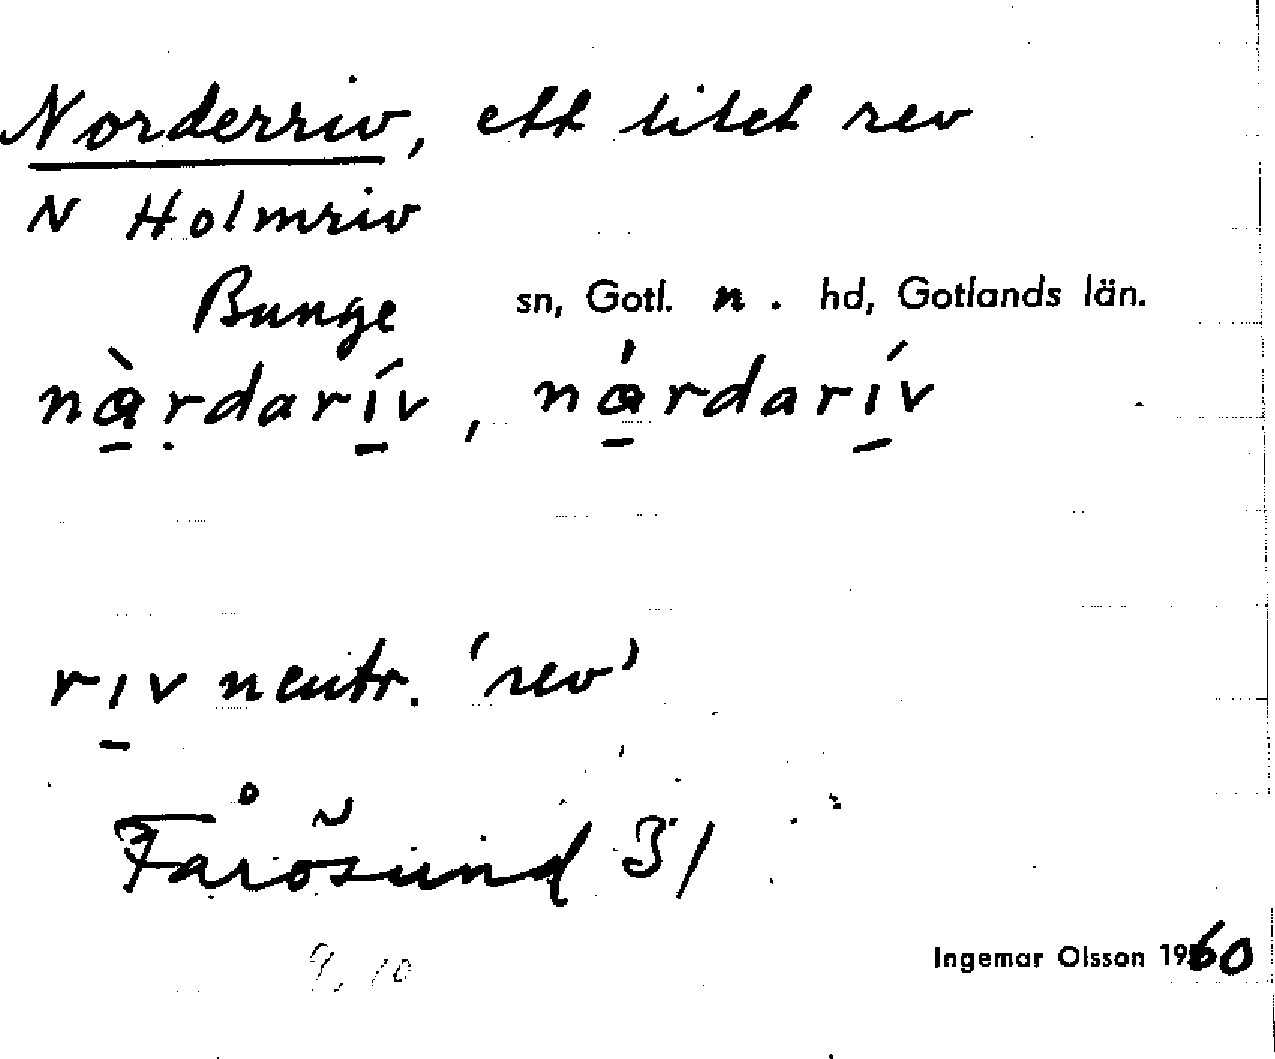 Norderriv, ett litet rev
N Holmriv
Bunge sn, Gotl. n. hd, Gotlands län.
nà̱ṛdarí̱v, ná̱rdarí̱v
rı̱v neutr. 'rev'
Fårösund 31
9, 10
Ingemar Olsson 1960